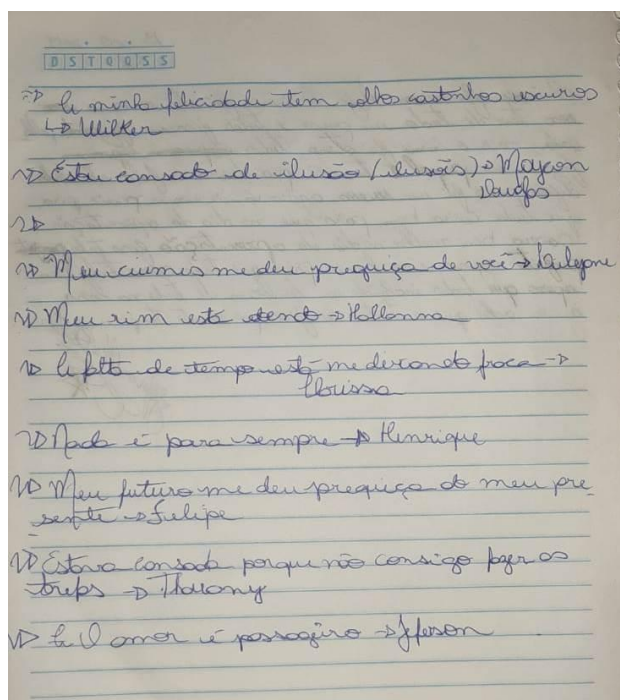 D S T Q Q S S
=> A minha felicidade tem olhos castanhos escuros
↳ Wilker
=> Estou cansado de ilusão (ilusões) → Maycon
Douglas
=>
=> Meu ciumes me deu preguiça de você →
=> Meu rim está doendo → Hallanna
=> A falta de tempo está me deixando fraca →
Clarissa
=> Nada é para sempre → Henrique
=> Meu futuro me deu preguiça do meu pre-
sente → Felipe
=> Estava cansada porque não consigo fazer as
=> O amor é passageiro → Jeferson